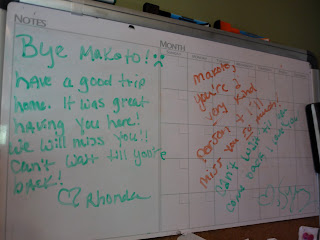 NOTES
Bye Makoto!
Have a good trip
home. It was great
having you here!
We will miss you!!
Can't wait till you're
back!
♡ Rhonda
MONTH
Makoto,
you're a
very kind
person & I'll
miss you so much!
Can't wait til you
come back